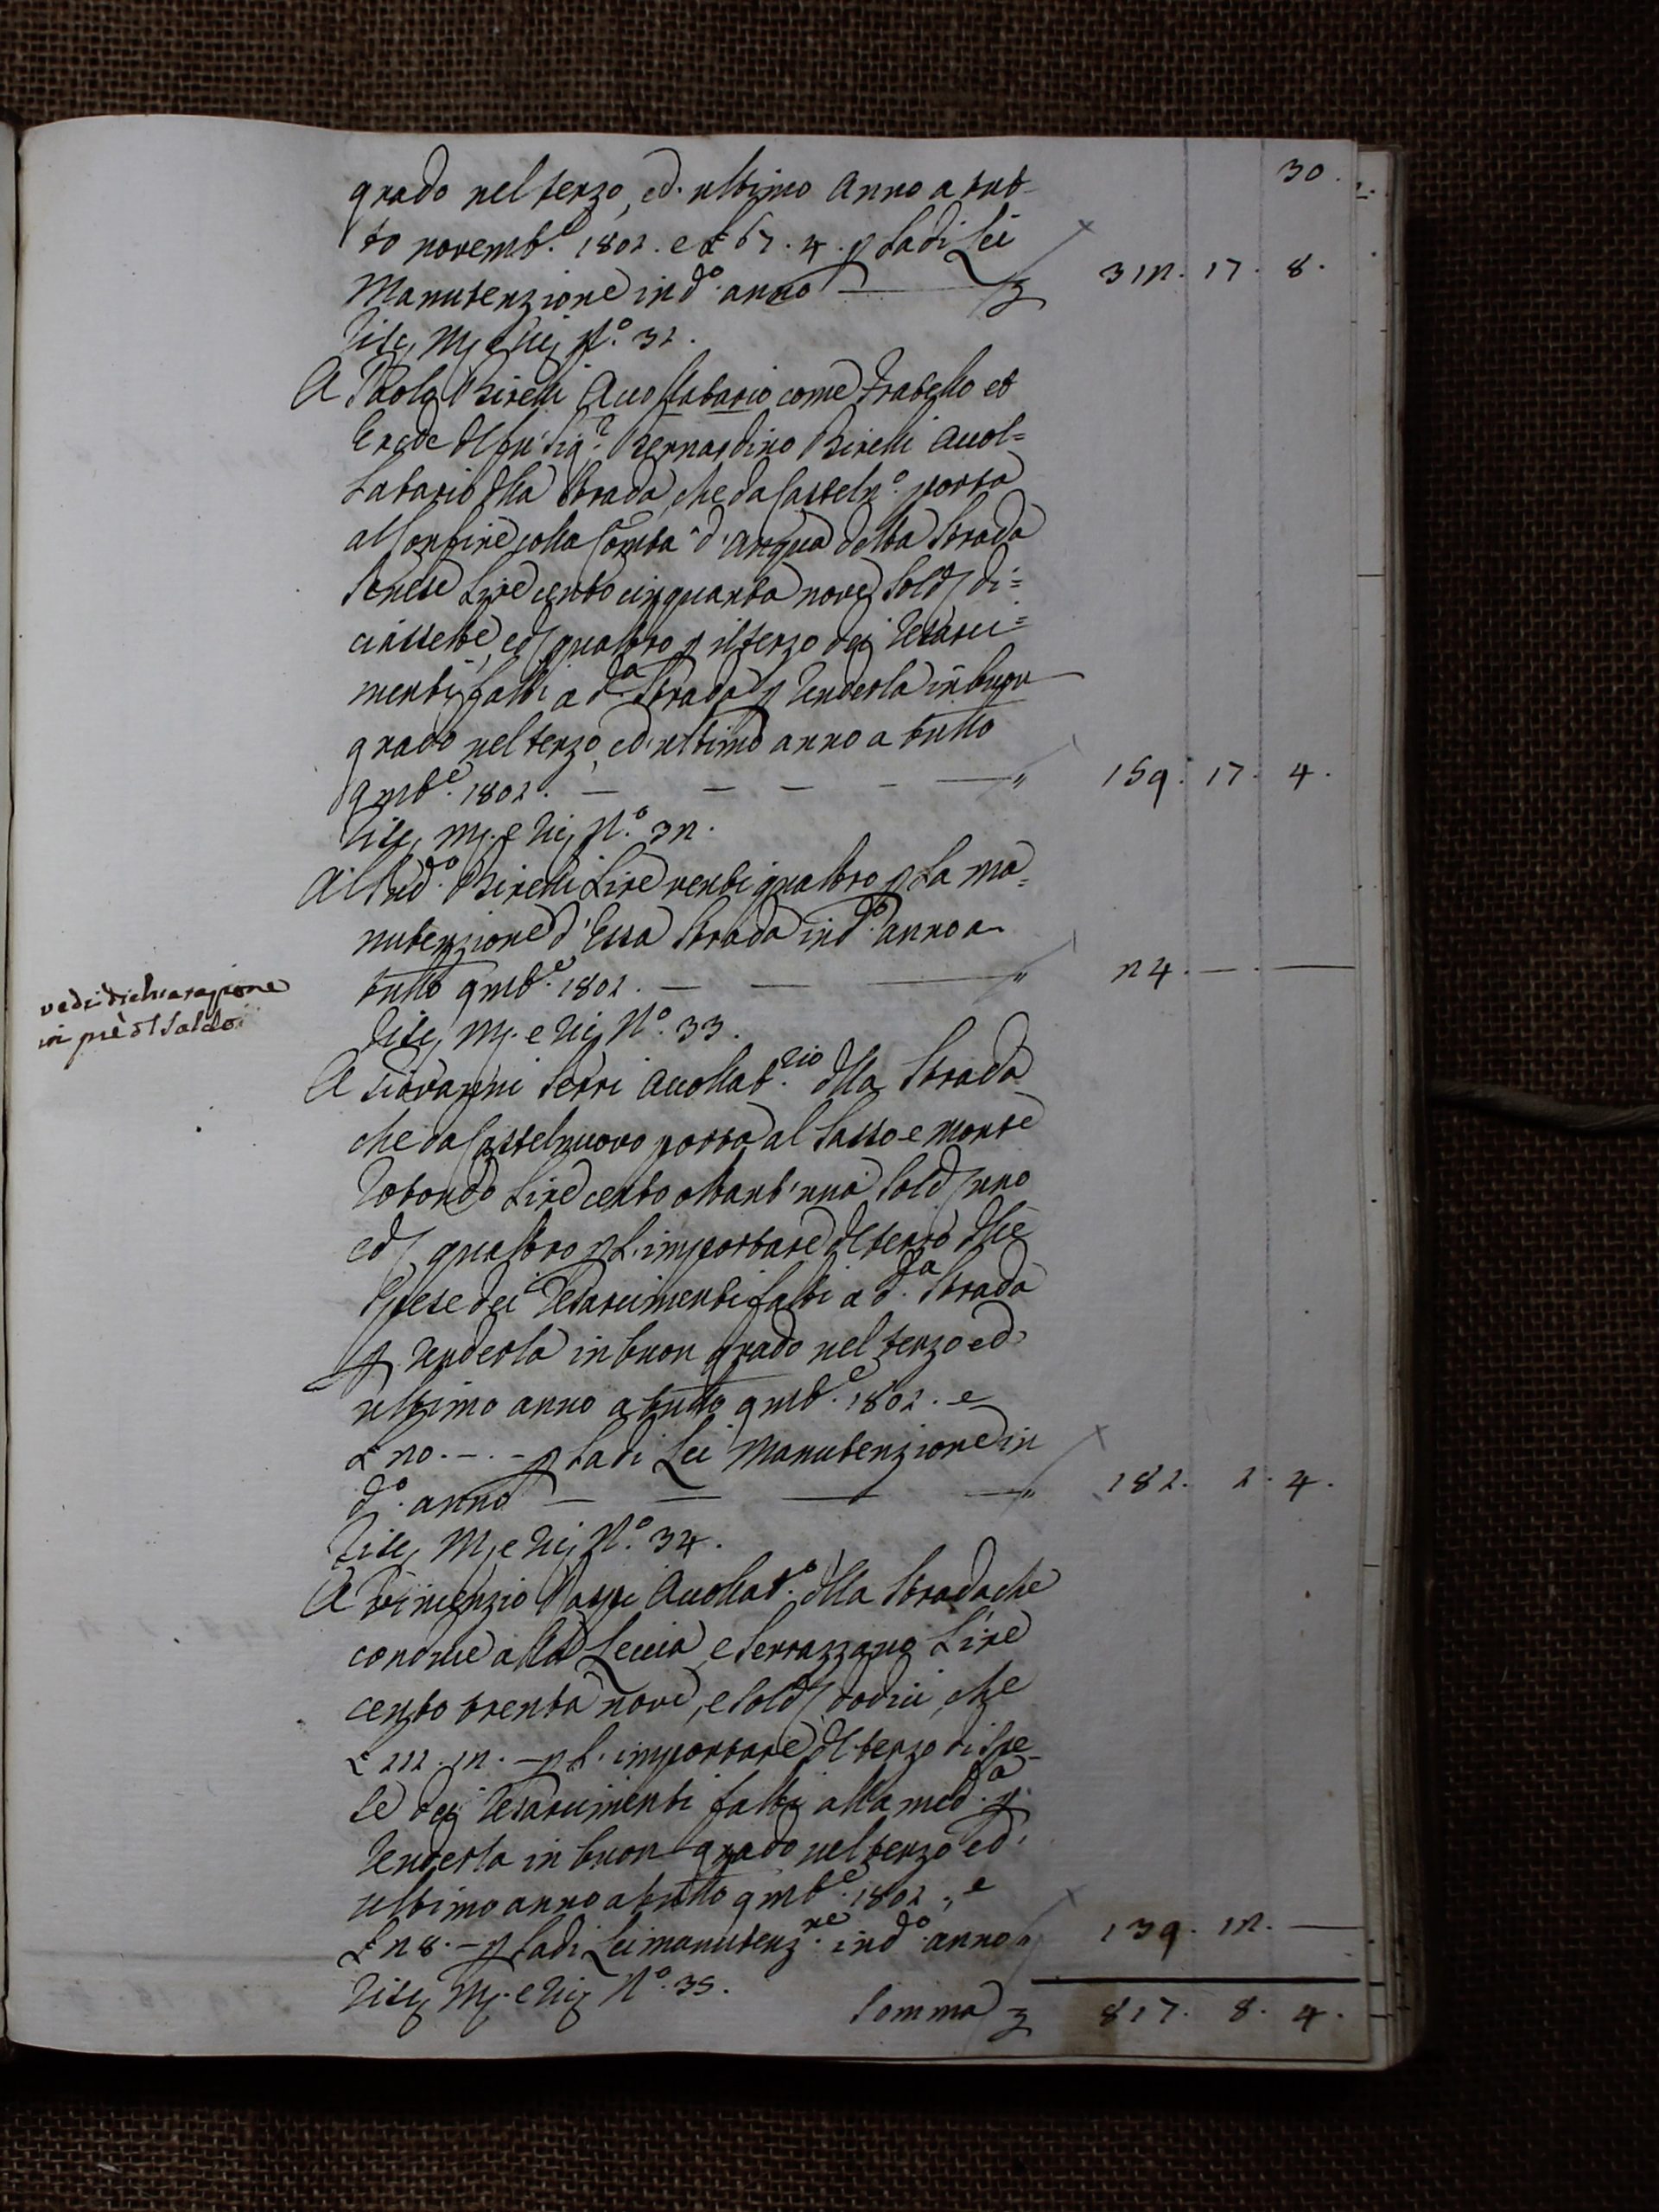 30.
grado nel terzo, ed ultimo Anno a tut-
to novemb.e 1802. e £ 67. 4. p la di Lei
Manutenzione in d.o anno 312. 17. 8.
N.o 32.
A Paolo Birelli Accollatario come Fratello ed
Erede del fu Sig.r Bernardino Birelli Accol=
latario dlla Strada, che da Casteln.o porta
al Confine colla d'acqua detta Strada
Lire cento cinquanta nove Sold di=
ciassette, ed quattro p il terzo dei resarci=
menti fatti a d.a Strada p renderla in buon
grado nel terzo, ed ultimo anno a tutto
9mb.e 1802. — — — — " 159. 17. 4.
N.o 32.
Al sud.o Birelli Lire venti quattro p la ma=
nutenzione d'Essa Strada in d.o anno a
tutto 9mb.e 1802. — — — " 24. — . —
vedi dichiarazione
in piè dl Saldo
N.o 33.
A Giovanni Serri Accollat.rio dlla Strada
che da Castelnuovo porta al Sasso e Monte
Rotondo Lire cento ottant'una Sold uno
ed quattro p l'importare dl terzo dlle
Spese dei resarcimenti fatti a d.a Strada
p renderla in buon grado nel terzo ed
ultimo anno a tutto 9mb.e 1802. e
£ 20. -. - p la di Lei Manutenzione in
d.o anno — — — — " 182. 2. 4.
N.o 34.
A Vincenzio Accollat.o dlla Strada che
conduce alla Leccia, e Serrazzano Lire
cento trenta nove, e Sold dodici, che
£ 111. 12. — p l'importare dl terzo di Spe-
se dei resarcimenti fatti alla med.a p
renderla in buon grado nel terzo ed
ultimo anno a tutto 9mb.e 1802., e
£ 28. — p la di Lei manutenz.ne in d.o anno " 139. 12. —
N.o 35.
Somma 817. 8. 4.